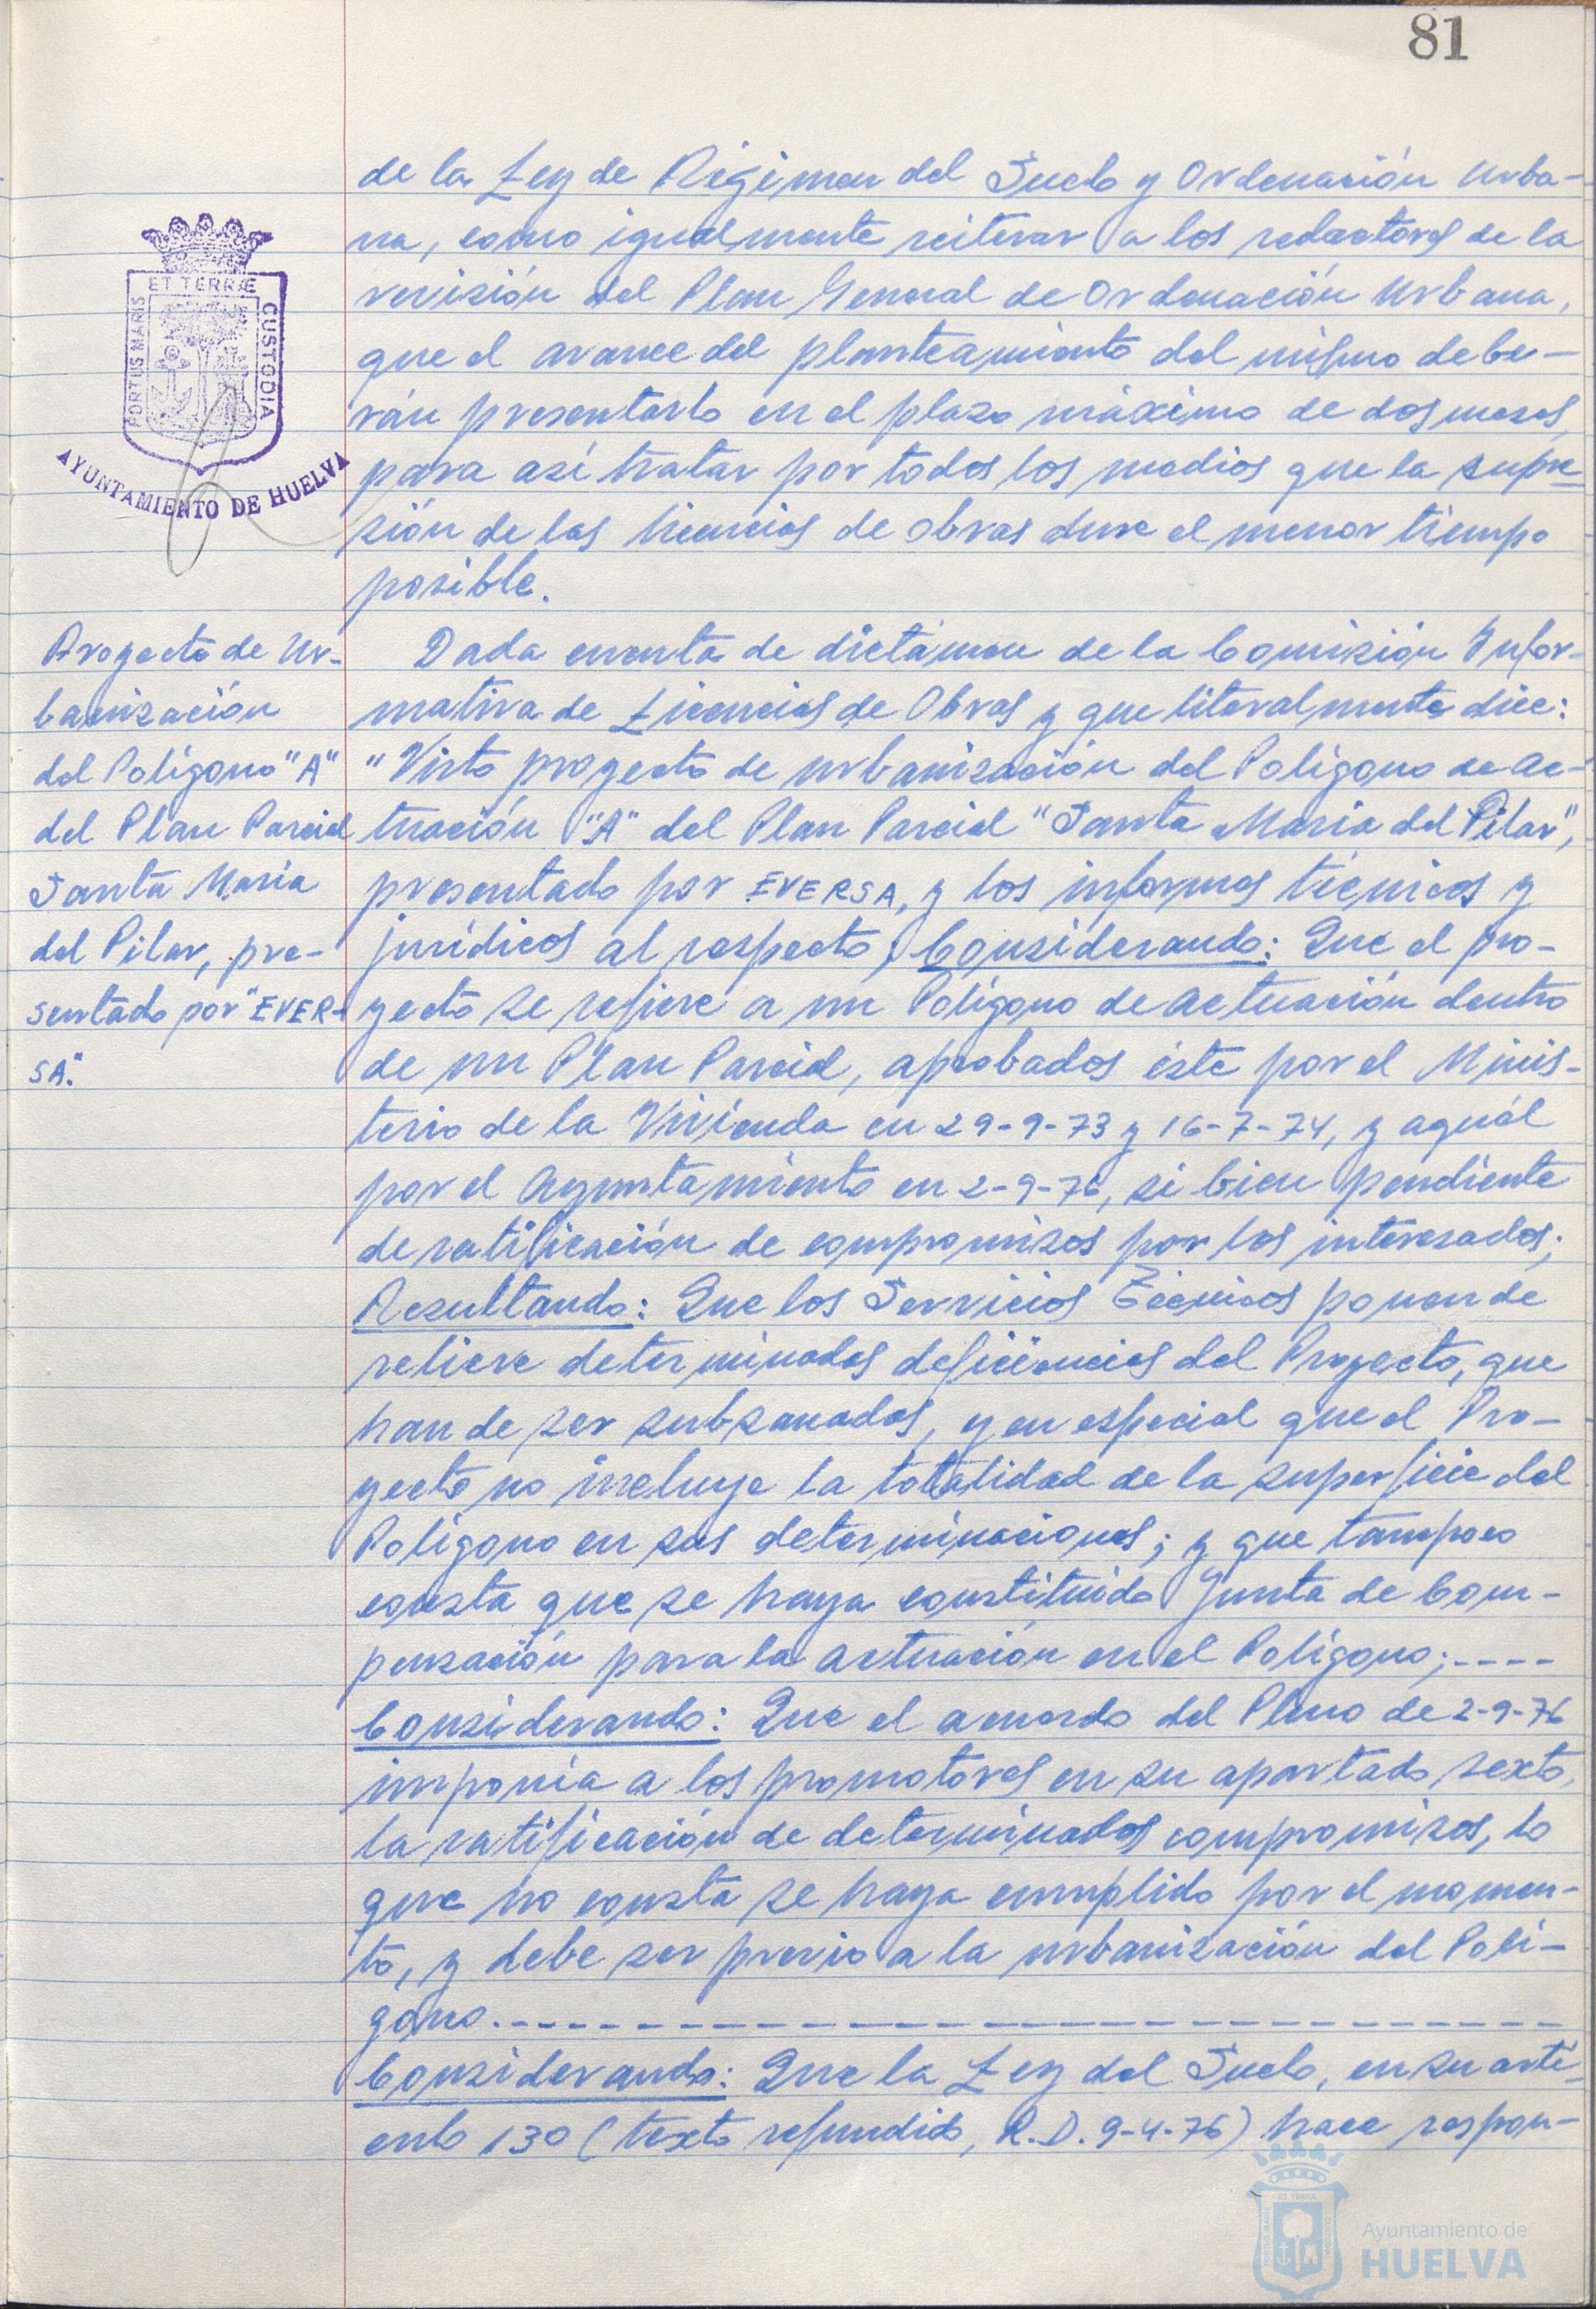 81
de la Ley de Régimen del Suelo y Ordenación Urba-
na, como igualmente reiterar a los redactores de la
revisión del Plan General de Ordenación Urbana,
que el avance del planteamiento del mismo debe-
rán presentarlo en el plazo máximo de dos meses,
para así tratar por todos los medios que la supre-
sión de las licencias de obras dure el menor tiempo
posible.
ET TERRÆ
PORTUS MARIS
CUSTODIA
AYUNTAMIENTO DE HUELVA
Proyecto de Ur-
banización
del Polígono "A"
del Plan Parcial
Santa María
del Pilar, pre-
sentado por "EVER-
SA."
Dada cuenta de dictámen de la Comisión Infor-
mativa de Licencias de Obras y que literalmente dice:
"Visto proyecto de urbanización del Polígono de ac-
tuación "A" del Plan Parcial "Santa María del Pilar",
presentado por EVERSA, y los informes técnicos y
jurídicos al respecto; Considerando: Que el pro-
yecto se refiere a un Polígono de actuación dentro
de un Plan Parcial, aprobados éste por el Minis-
terio de la Vivienda en 29-9-73 y 16-7-74, y aquél
por el Ayuntamiento en 2-9-76, si bien pendiente
de ratificación de compromisos por los interesados;
Resultando: Que los Servicios Técnicos ponen de
relieve determinadas deficiencias del Proyecto, que
han de ser subsanadas, y en especial que el Pro-
yecto no incluye la totalidad de la superficie del
Polígono en sus determinaciones; y que tampoco
consta que se haya constituido Junta de Com-
pensación para la actuación en el Polígono;----
Considerando: Que el acuerdo del Pleno de 2-9-76
imponía a los promotores en su apartado sexto,
la ratificación de determinados compromisos, lo
que no consta se haya cumplido por el momen-
to, y debe ser previo a la urbanización del Polí-
gono.------------------------------
Considerando: Que la Ley del Suelo, en su artí-
culo 130 (texto refundido, R.D. 9-4-76) hace respon-
Ayuntamiento de
HUELVA